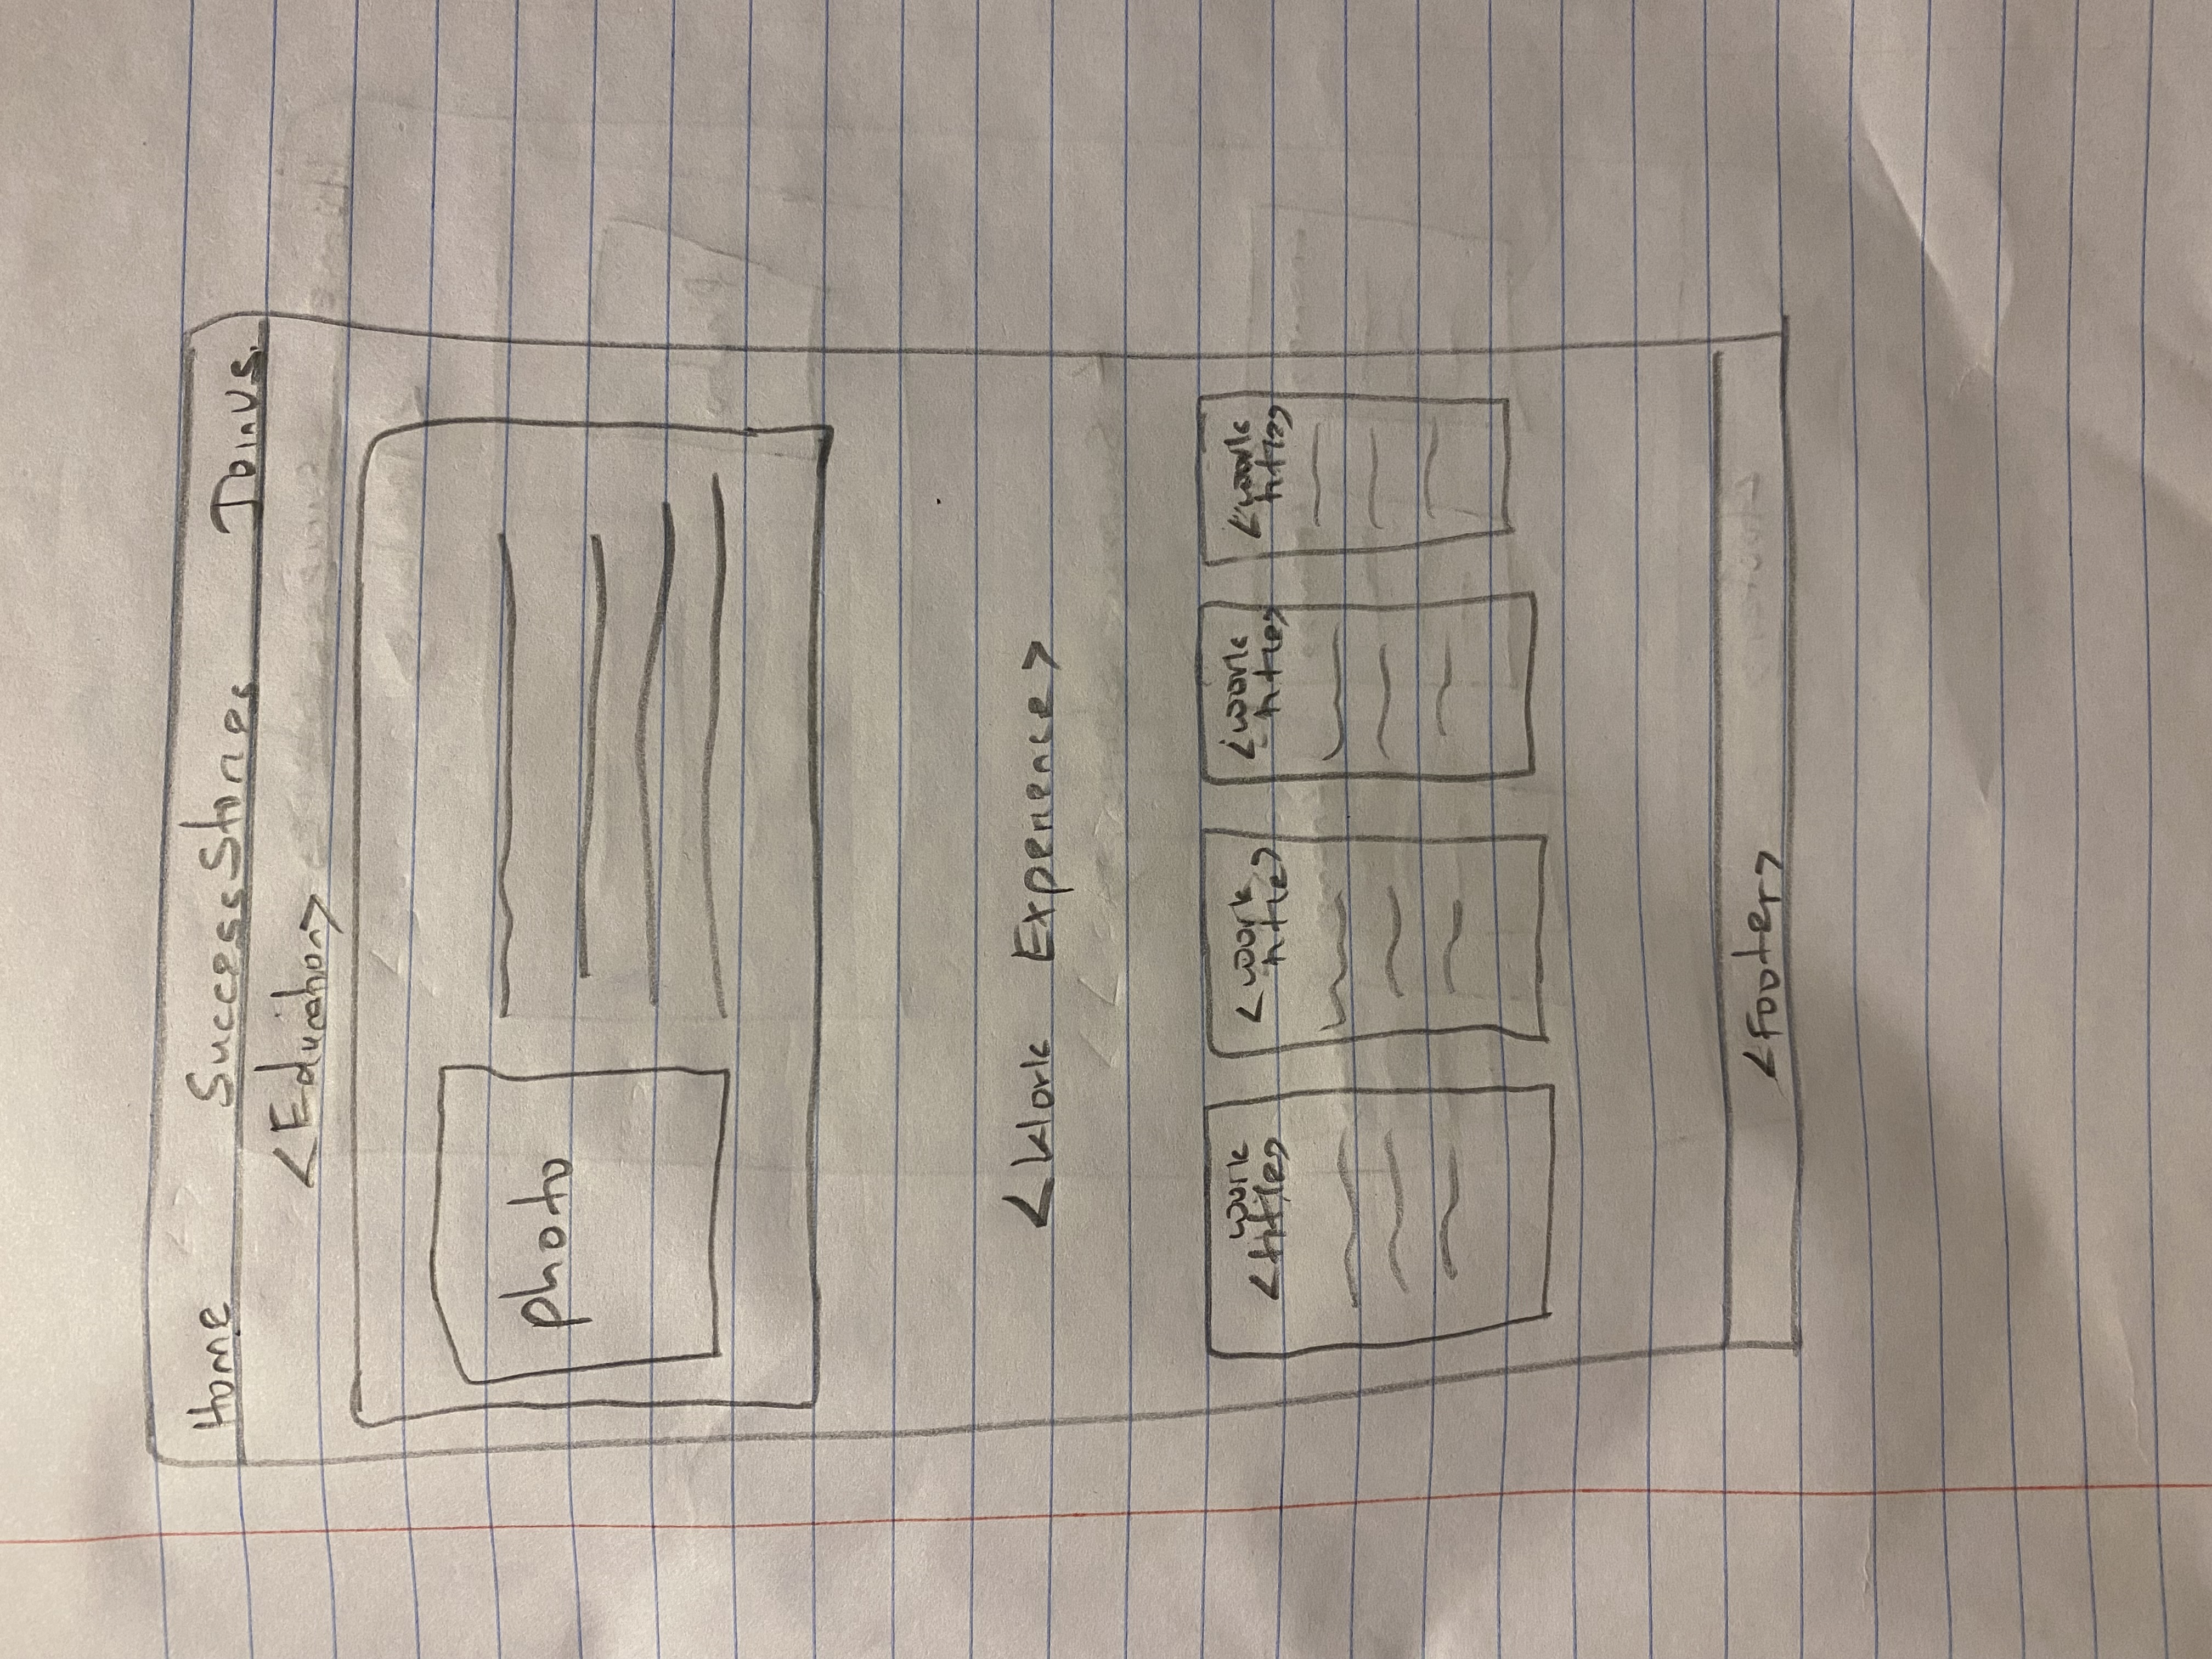 Home SuccessStories JoinUs.
<Education>
photo
<Work Experience>
work <work <work <work
<title> title> title> title>
<Footer>